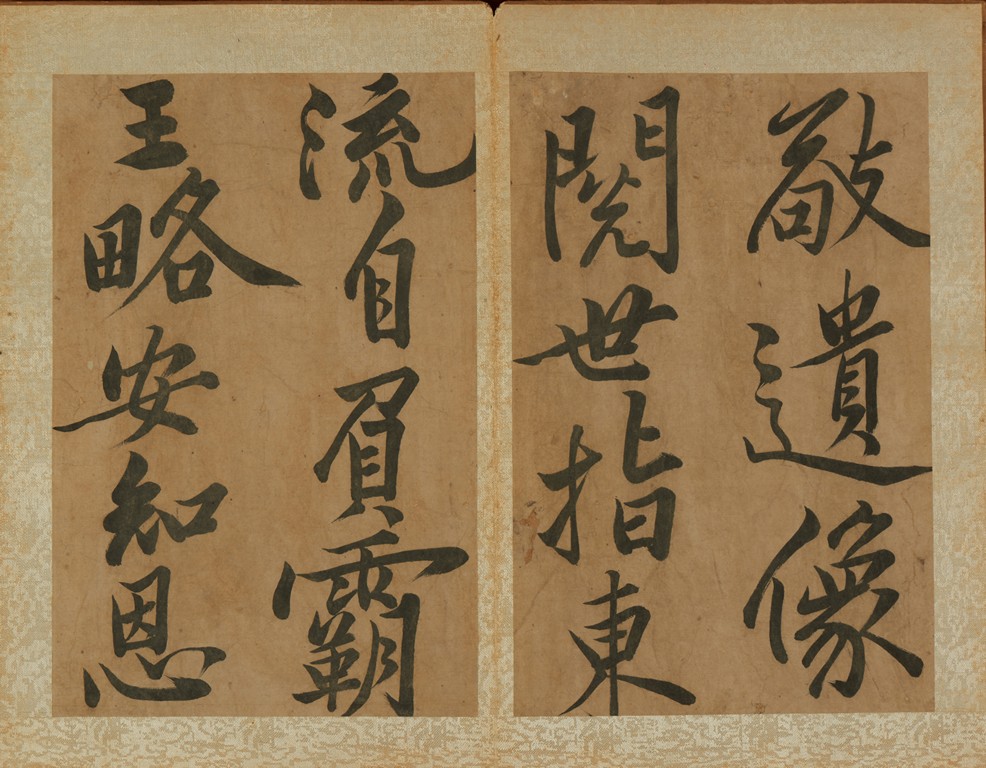 敬遺像
閱世指東
流自負霸
王略安知恩